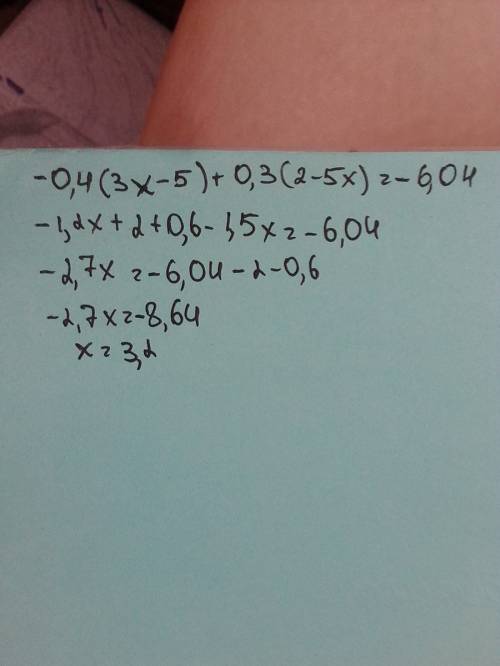 -0,4(3x-5)+0,3(2-5x)=-6,04
-1,2x+2+0,6-1,5x=-6,04
-2,7x=-6,04-2-0,6
-2,7x=-8,64
x=3,2